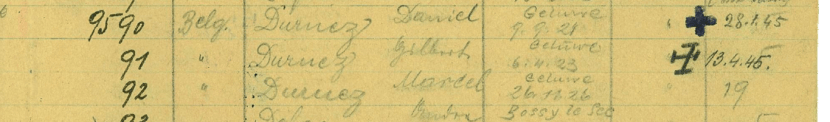 9590 Belg. Durnez Daniel Geluwe 9.9.21 " 28.1.45
91 " Durnez Gilbert Geluwe 6.4.23 13.4.45.
92 " Durnez Marcel Geluwe 26.12.26 " 19